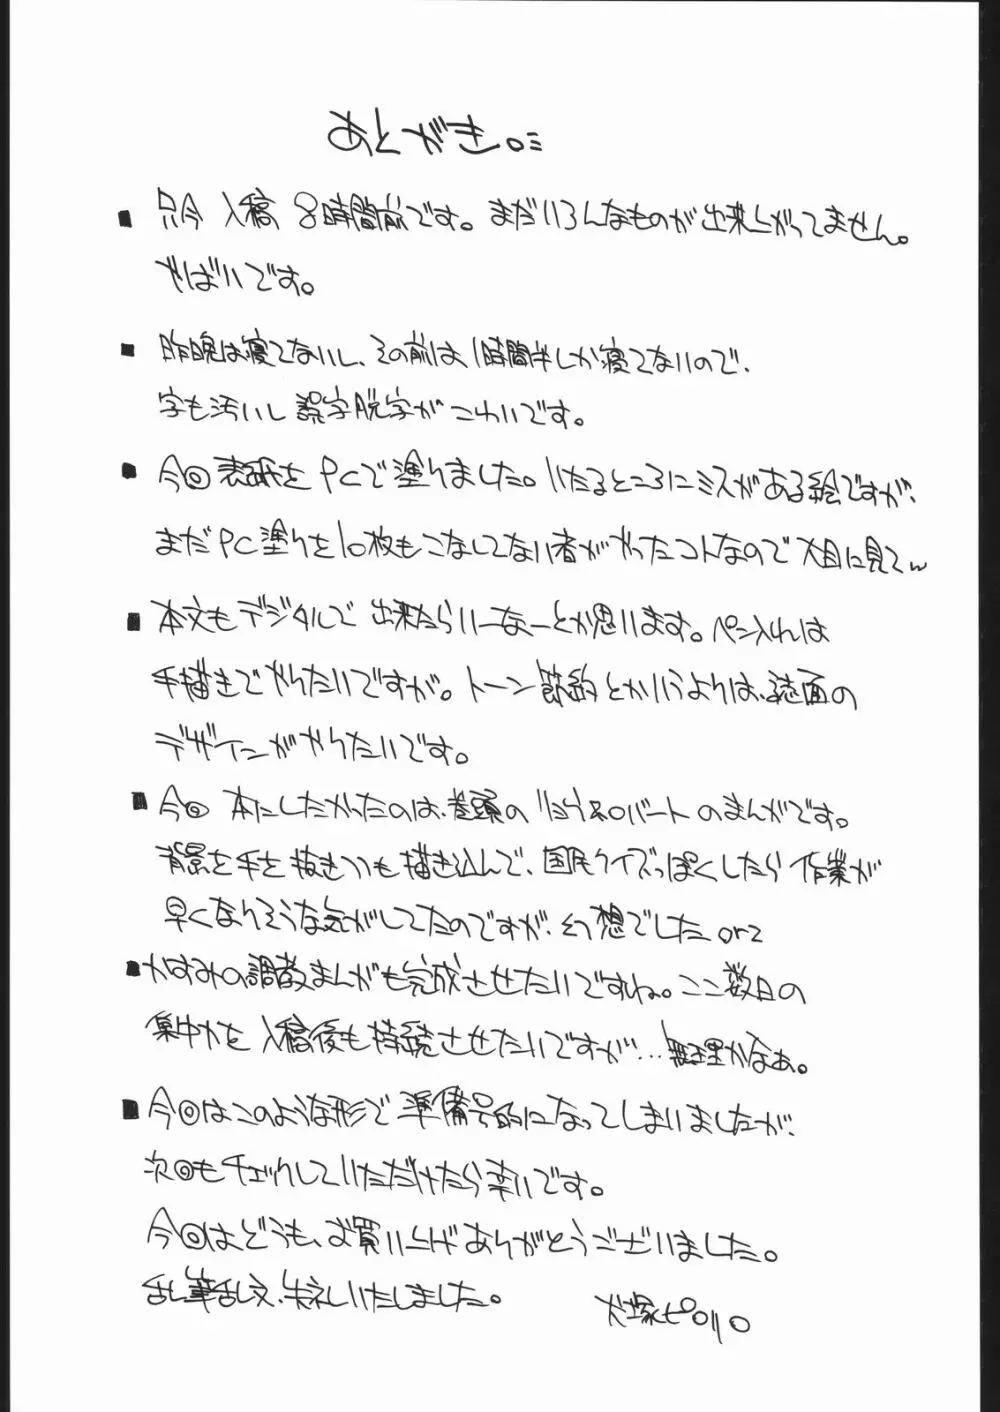 あとがき。
■ 只今 入稿 8時間前です。まだいろんなものが出来上がってません。
やばいです。
■ 昨晩は寝てないし、その前は1時間半しか寝てないので、
字も汚いし 誤字脱字がこわいです。
■ 今回表紙をPCで塗りました。いたるところにミスがある絵ですが、
まだPC塗りを10枚もこなしてない者がやったコトなので大目に見てw
■ 本文もデジタルで出来たらいーなーとか思います。ペン入れは
手描きでやりたいですが。トーン節約とかいうよりは、誌面の
デザインがやりたいです。
■ 今回 本にしたかったのは、巻頭の のまんがです。
背景を手を抜きつつも描き込んで、国民クイズっぽくしたら作業が
早くなりそうな気がしてたのですが、幻想でしたorz
■ かすみの調教まんがも完成させたいですね。ここ数日の
集中力を入稿後も持続させたいですが…無理かなぁ。
■ 今回はこのような形で準備号的になってしまいましたが、
次回もチェックしていただけたら幸いです。
今回はどうも、お買い上げありがとうございました。
乱筆乱文、失礼いたしました。 犬塚ピロリロ